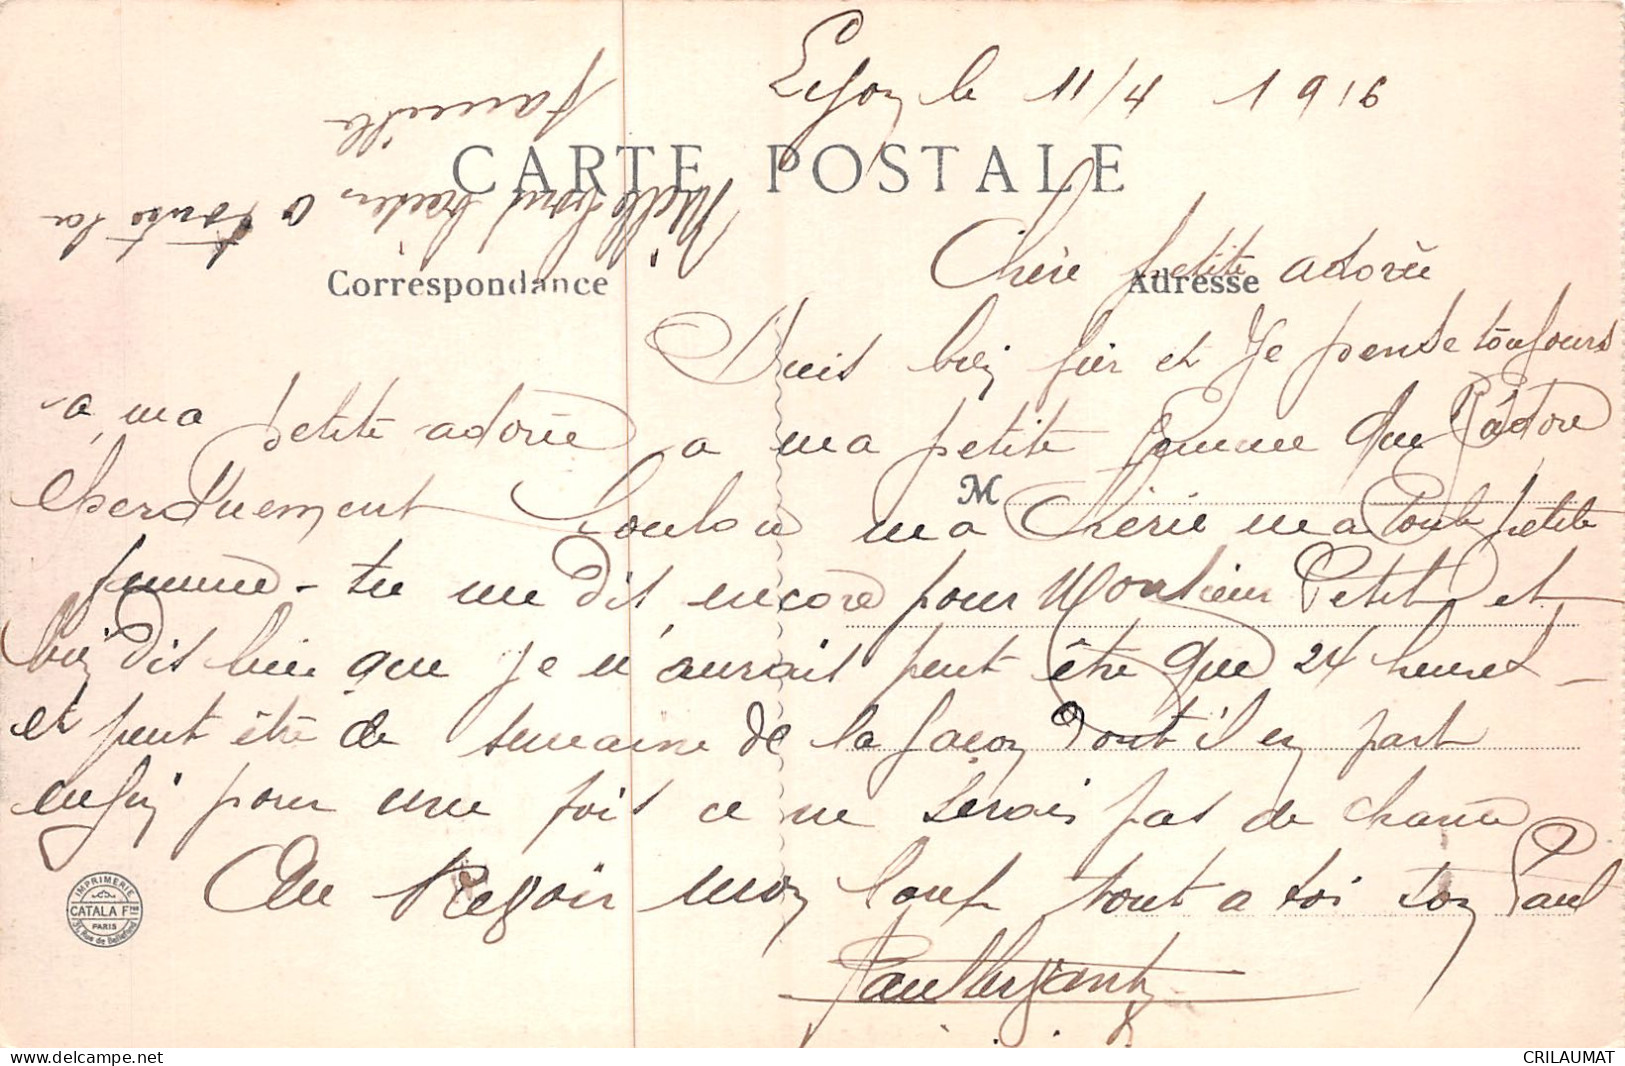 Lyon le 11/4 1916
CARTE POSTALE
Mille bons baisers a toute la
famille
Correspondance
Adresse
Chère petite adorée
Suis bien fier et Je pense toujours
a ma petite adorée a ma petite femme que J'adore
M
Loulou ma Chérie ma toute petite
femme - tu me dis encore pour Monsieur Petit et
bien dis lui que je n'aurait peut être que 24 heures
et peut être de semaine de la façon dont il en part
enfin pour une fois ce ne serais pas de chance
Au Revoir mon Loup tout a toi ton Paul
Paul
IMPRIMERIE
CATALA Fres
PARIS
31, Rue de Bellefond
CRILAUMAT